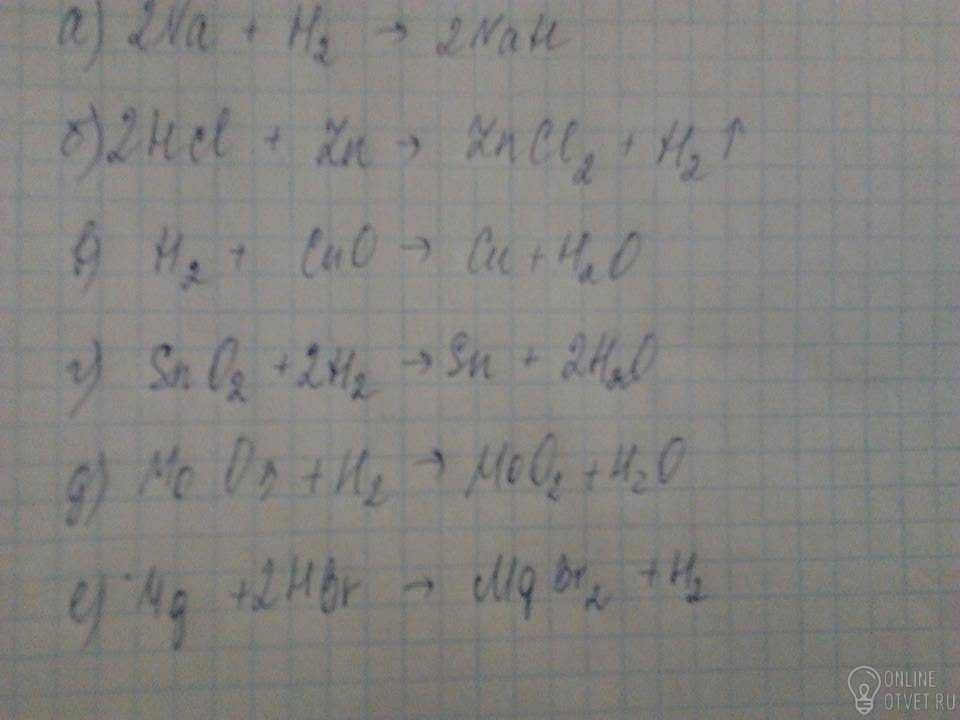 а) 2Na + H₂ → 2NaH
б) 2HCl + Zn → ZnCl₂ + H₂↑
в) H₂ + CuO → Cu + H₂O
г) SnO₂ + 2H₂ → Sn + 2H₂O
д) MoO₃ + H₂ → MoO₂ + H₂O
е) Mg + 2HBr → MgBr₂ + H₂
ONLINE
OTVET.RU